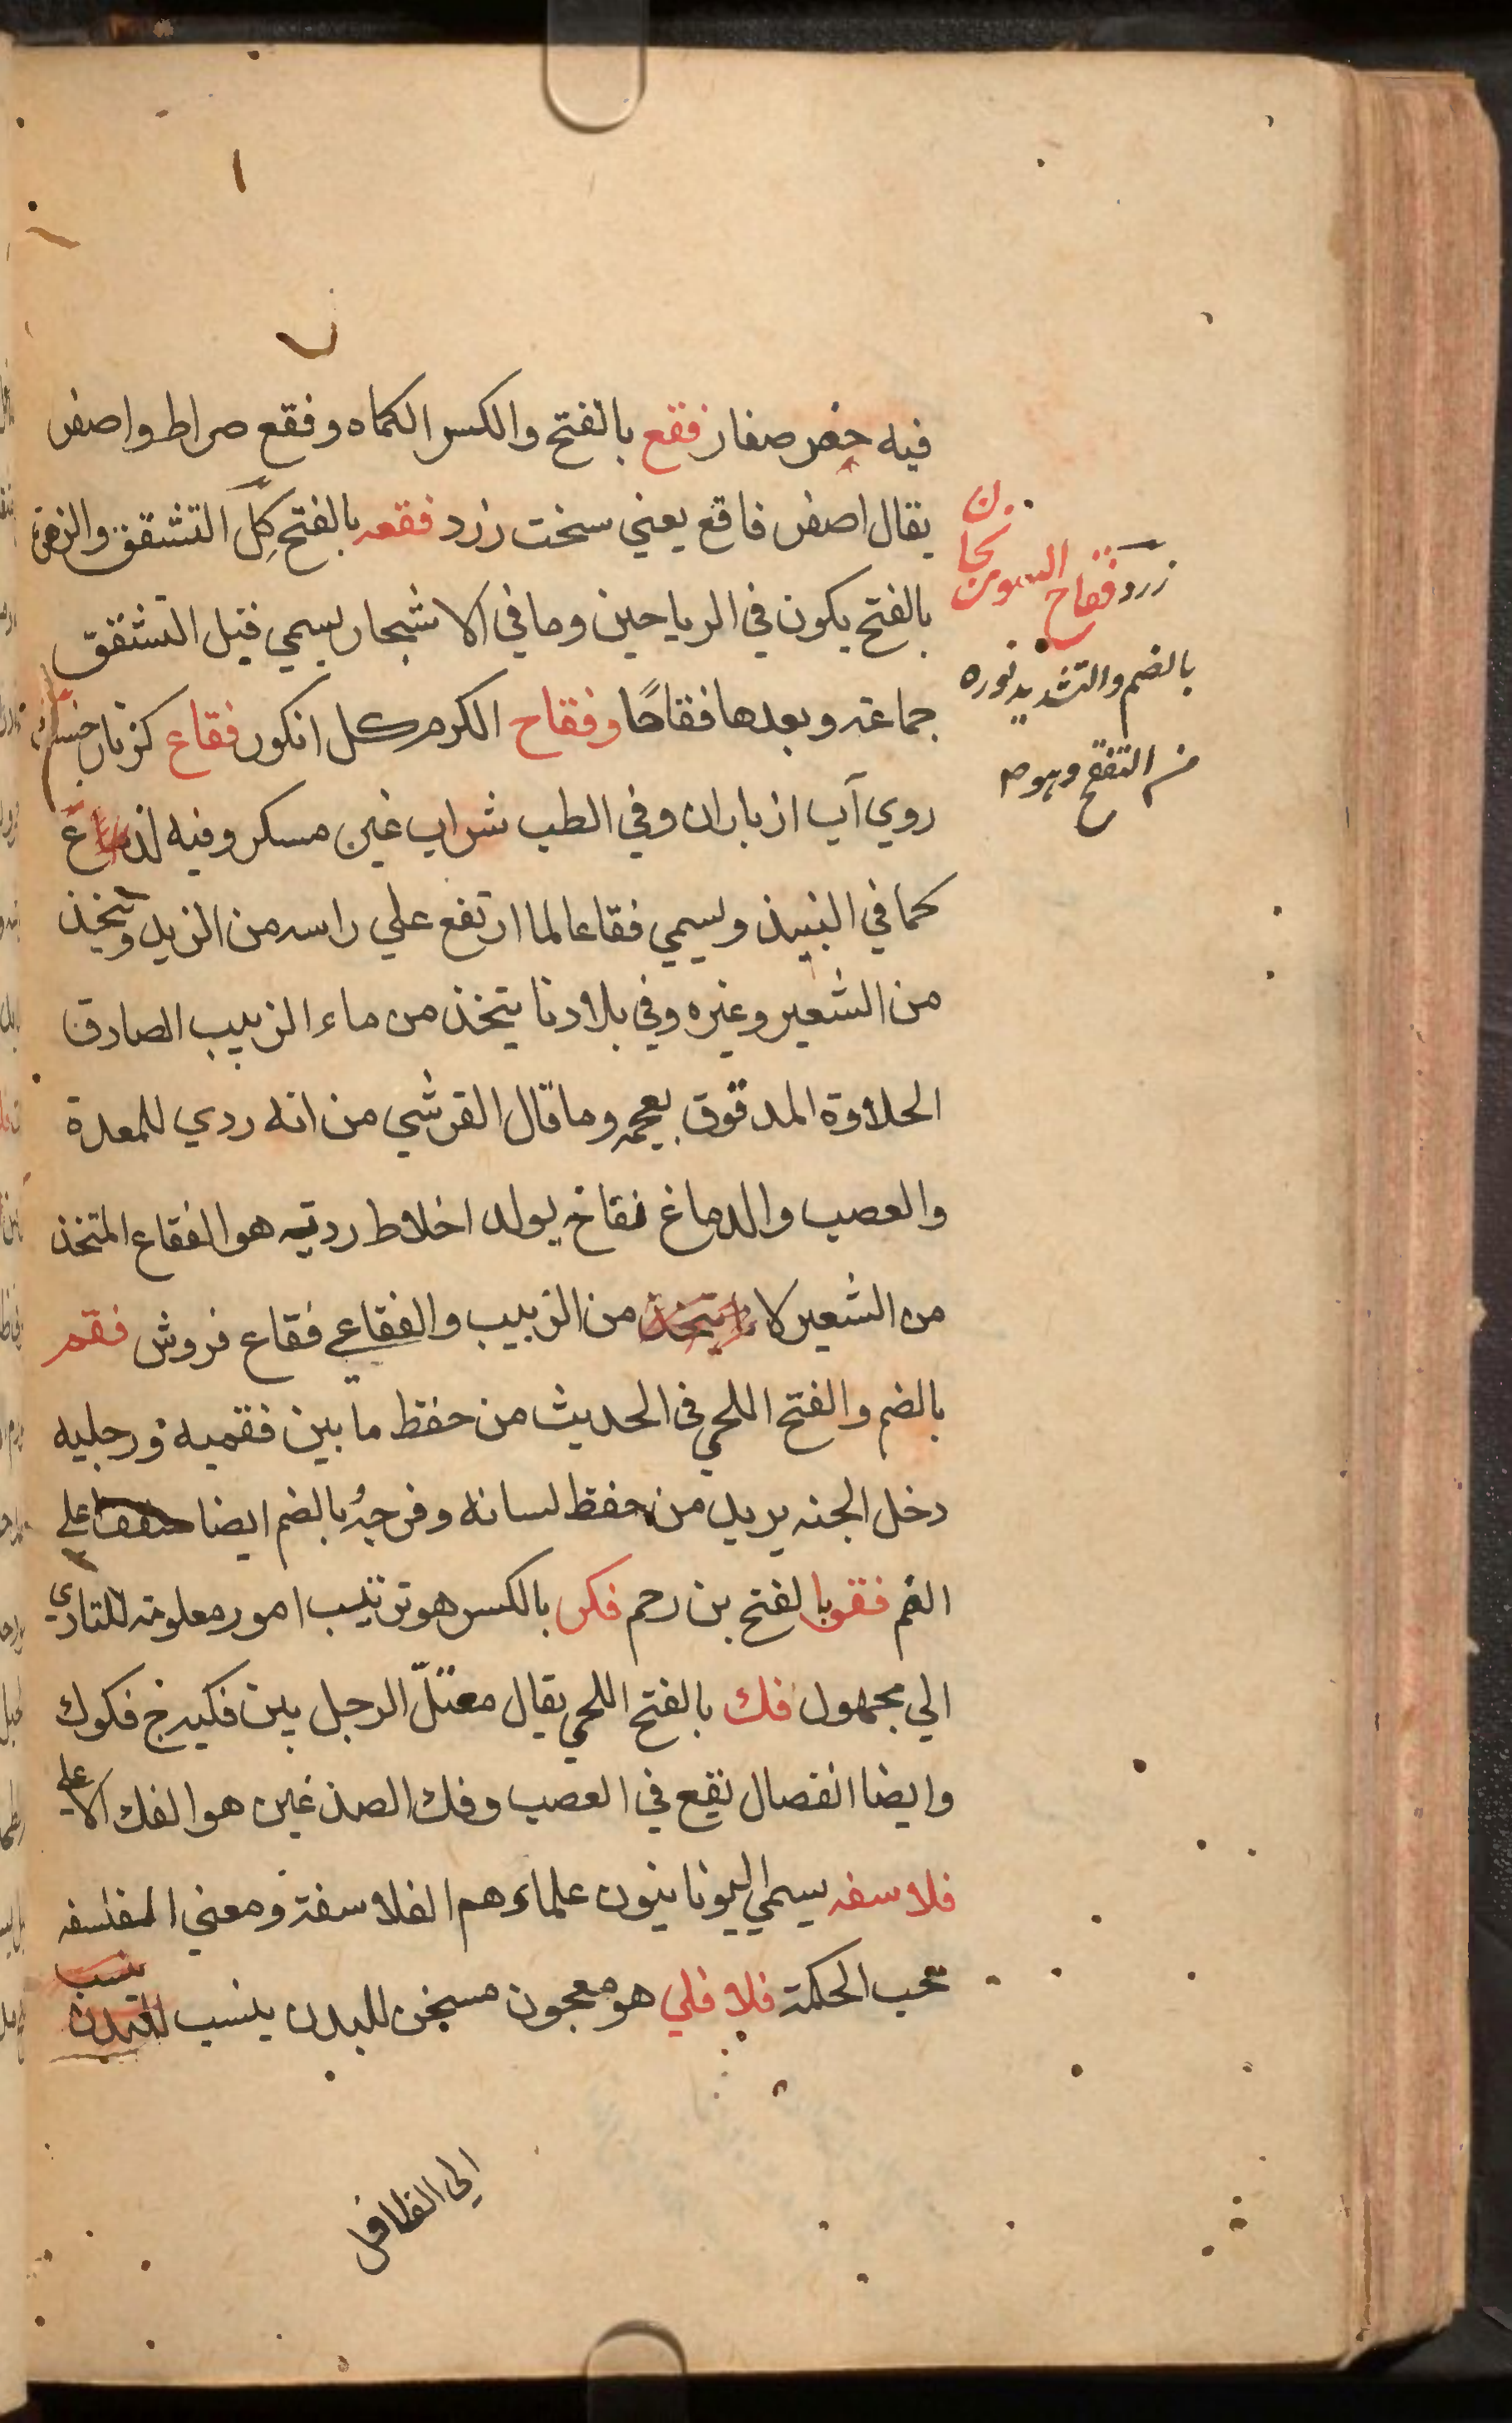 فيه حفر صغار فقع بالفتح والكسر الكماه وفقع صراط واصفر
يقال اصفر فاقع يعني سخت زرد فقعه بالفتح كل التشقق والزهر
بالفتح يكون في الرياحين وما في الاشجار يسمي قبل التشقق
جماعة وبعدها فقاحًا وفقاح الكرم كل انكور فقاع كز بار
روي آب از باران وفي الطب شراب غير مسكر وفيه
كما في النبيذ ويسمي فقاعا لما ارتفع علي راسه من الزبد ويتخذ
من الشعير وغيره وفي بلادنا يتخذ من ماء الزبيب الصادق
الحلاوة المدقوق بعجمه وما قال القرشي من انه ردي للمعدة
والعصب والدماغ نفاخ يولد اخلاط رديه هو الفقاع المتخذ
من الشعير لا من الزبيب والفقاعي فقاع فروش فقم
بالضم والفتح اللحي في الحديث من حفظ ما بين فقميه ورجليه
دخل الجنه يريد من حفظ لسانه وفرجه بالضم ايضا علي
الفم فقو بالفتح بن رحم فكر بالكسر هو ترتيب امور معلومة للتادي
الي مجهول فك بالفتح اللحي يقال مقتل الرجل بين فكيه ج فكوك
وايضا انفصال يقع في العصب وفك الصدغين هو الفك الاعلي
فلاسفه يسمي اليونانيون علماءهم الفلاسفة ومعني الفلسفه
محب الحكمة فلافلي هو معجون مسخن للبدن ينسب
الي الفلافل
زرد فقاح
بالضم والتشديد نوره
من التفقح وهو